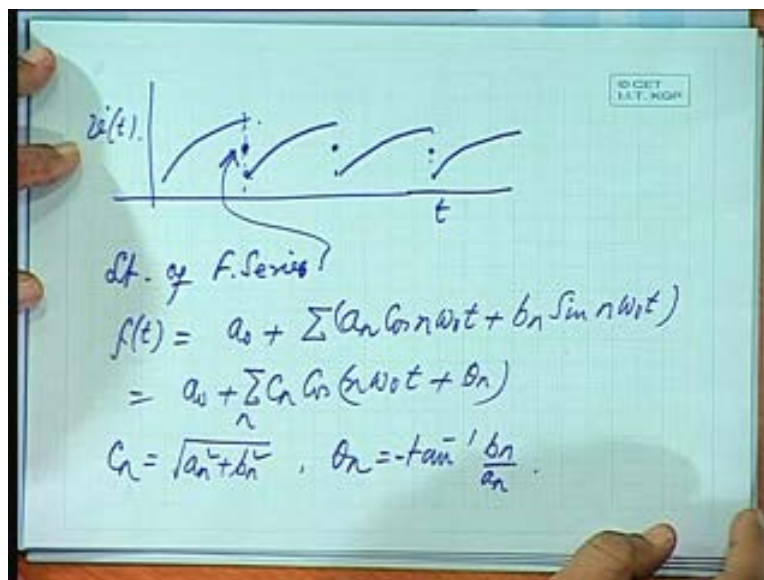 © CET
I.I.T. KGP
v(t).
t
Lt. of F. Series
f(t) = a₀ + Σ(aₙ Cos nω₀t + bₙ Sin nω₀t)
= a₀ + Σₙ Cₙ Cos (nω₀t + θₙ)
Cₙ = √(aₙ² + bₙ²) , θₙ = -tan⁻¹ bₙ/aₙ .